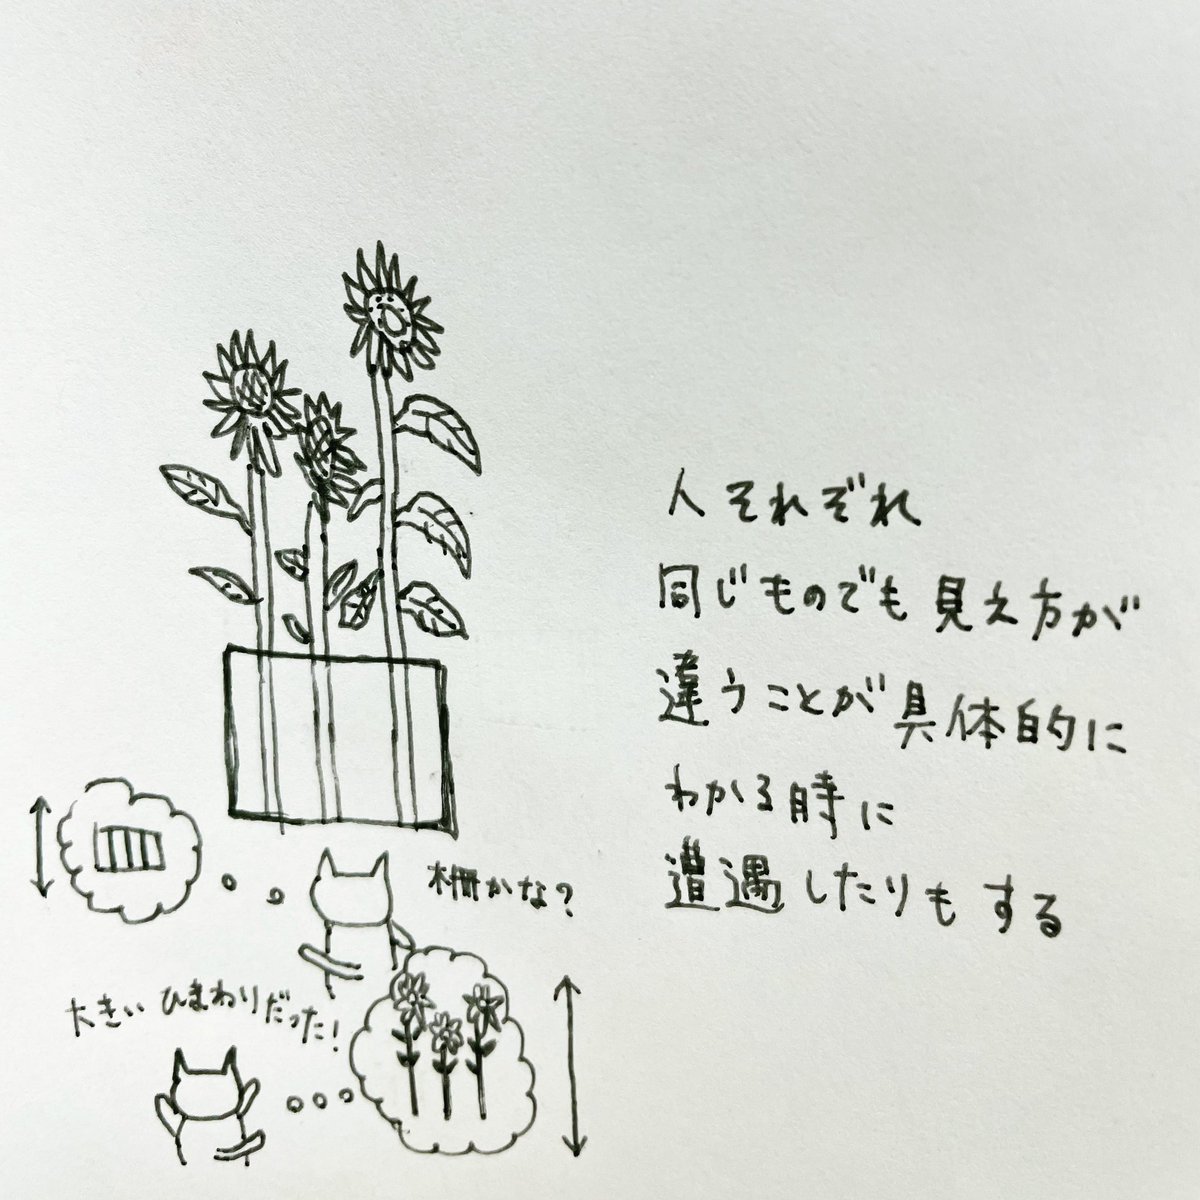 人それぞれ
同じものでも見え方が
違うことが具体的に
わかる時に
遭遇したりもする
柵かな?
大きいひまわりだった!